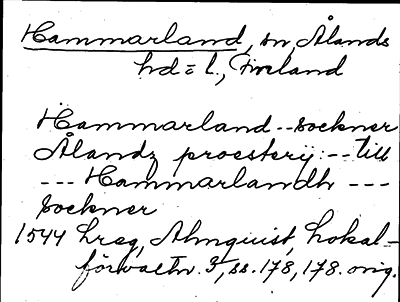 Hammarland, sn, Ålands
hd = l., Finland
Hammarland -- sockner
Ålandz proesterij: -- till
--- Hammarlandh ---
sockner
1544 hreg, Almquist, Lokal-
förvaltn. 3, ss. 178, 178. orig.